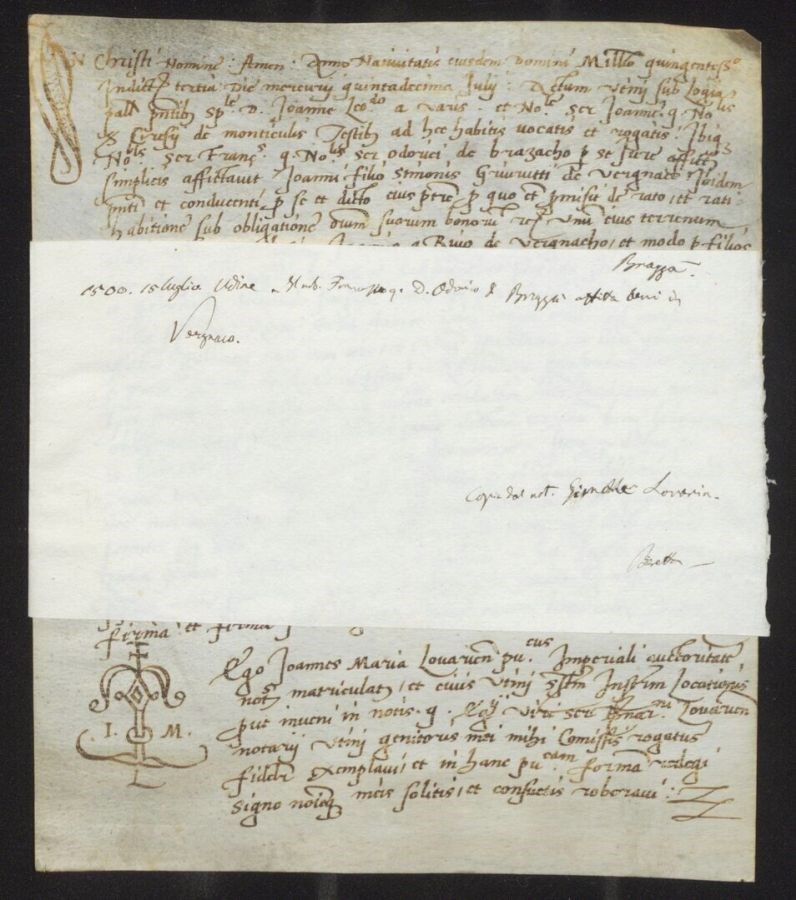 IN Christi Nomine: Amen: Anno Nativitatis eiusdem Domini Mill.o quingentes.o
Indict.e tertia: Die mercurij quintadecima Julij: Actum Utini sub Logia
pall. pntib. sp.le D. Joanne Leo.do a Varis: et No.le ser Joanne: q. No.lis
de monticulis Testib. ad hec habitis vocatis et rogatis: Ibiq
No.lis ser Franc.s q. No.lis ser odorici de brazacho p se suosq
simplicis affictavit Joanni filio Simonis de Vergnaco Ibidem
pnti et conducenti p se et dicto eius ptre p quo et pmisit de rato, et rati-
habitione sub obligatione oium suorum bonorum unum eius terrenum
q Rivo de vergnacho, et modo p filios
Brazzà.
1500. 15 luglio Udine Franc. q. D. Odorico di Brazzà affitta beni in
Vergnaco.
Copia del not. Lovaria.
Beretta
firma et forma
Ego Joannes Maria Lovaren pu.cus Imperiali auctoritate
not.s matriculat.s, et civis Utini Instrm Locationis
put inveni in notis q. viri ser Lovaren
notarij Utini genitoris mei mihi Comissis rogatus
fideliter exemplavi, et in hanc pu.cam formā redegi
signo noieq meis solitis, et consuetis roboravi:
.I. M.
L